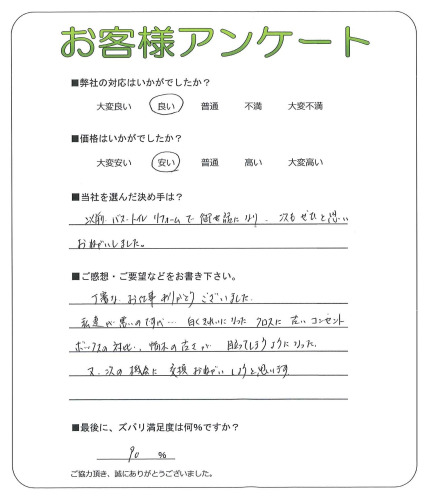 お客様アンケート
■弊社の対応はいかがでしたか？
大変良い 良い 普通 不満 大変不満
■価格はいかがでしたか？
大変安い 安い 普通 高い 大変高い
■当社を選んだ決め手は？
以前 バス・トイレ リフォームで 御世話になり、次もぜひと思い
おねがいしました。
■ご感想・ご要望などをお書き下さい。
丁寧な お仕事 ありがとう ございました。
私達が悪いのですが… 白くきれいになった クロスに 古い コンセント
ボックスの対比、 の古さが 目立ってしまうようになった。
又、次の機会に 交換 おねがい しようと思います。
■最後に、ズバリ満足度は何％ですか？
90 ％
ご協力頂き、誠にありがとうございました。